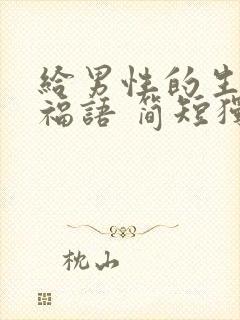 給男性的生
福語 簡短獨
枕山